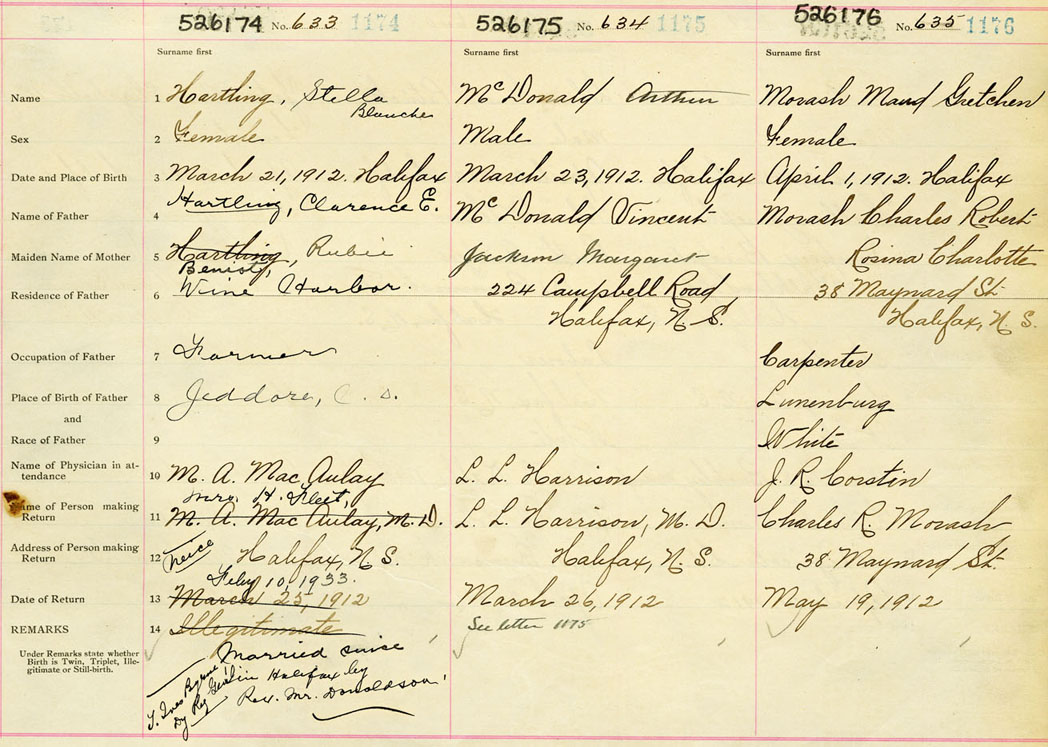 526174 No. 633 1174 526175 No. 634 1175 526176 No. 635 1176
Surname first Surname first Surname first
Name 1 Hartling, Stella Blanche McDonald Arthur Morash Maud Gretchen
Sex 2 Female Male Female
Date and Place of Birth 3 March 21, 1912. Halifax March 23, 1912. Halifax April 1, 1912. Halifax
Name of Father 4 Hartling, Clarence E. McDonald Vincent Morash Charles Robert
Maiden Name of Mother 5 Hartling, Rubie Jackson Margaret Rosina Charlotte
Residence of Father 6 Wine Harbor. 224 Campbell Road 38 Maynard St.
Halifax, N.S. Halifax, N.S.
Occupation of Father 7 Farmer Carpenter
Place of Birth of Father 8 Jeddore, Lunenburg
and
Race of Father 9 White
Name of Physician in at-
tendance 10 M. A. MacAulay L. L. Harrison J. R. Corstin
Name of Person making
Return 11 M. A. MacAulay, M.D. L. L. Harrison, M.D. Charles R. Morash
Address of Person making
Return 12 Halifax, N.S. Halifax, N.S. 38 Maynard St.
Feby 10, 1933.
Date of Return 13 March 25, 1912 March 26, 1912 May 19, 1912
REMARKS 14 Illegitimate See letter 1175
Under Remarks state whether
Birth is Twin, Triplet, Ille-
gitimate or Still-birth.
Married since
in Halifax by
Rev. Mr. Donaldson.